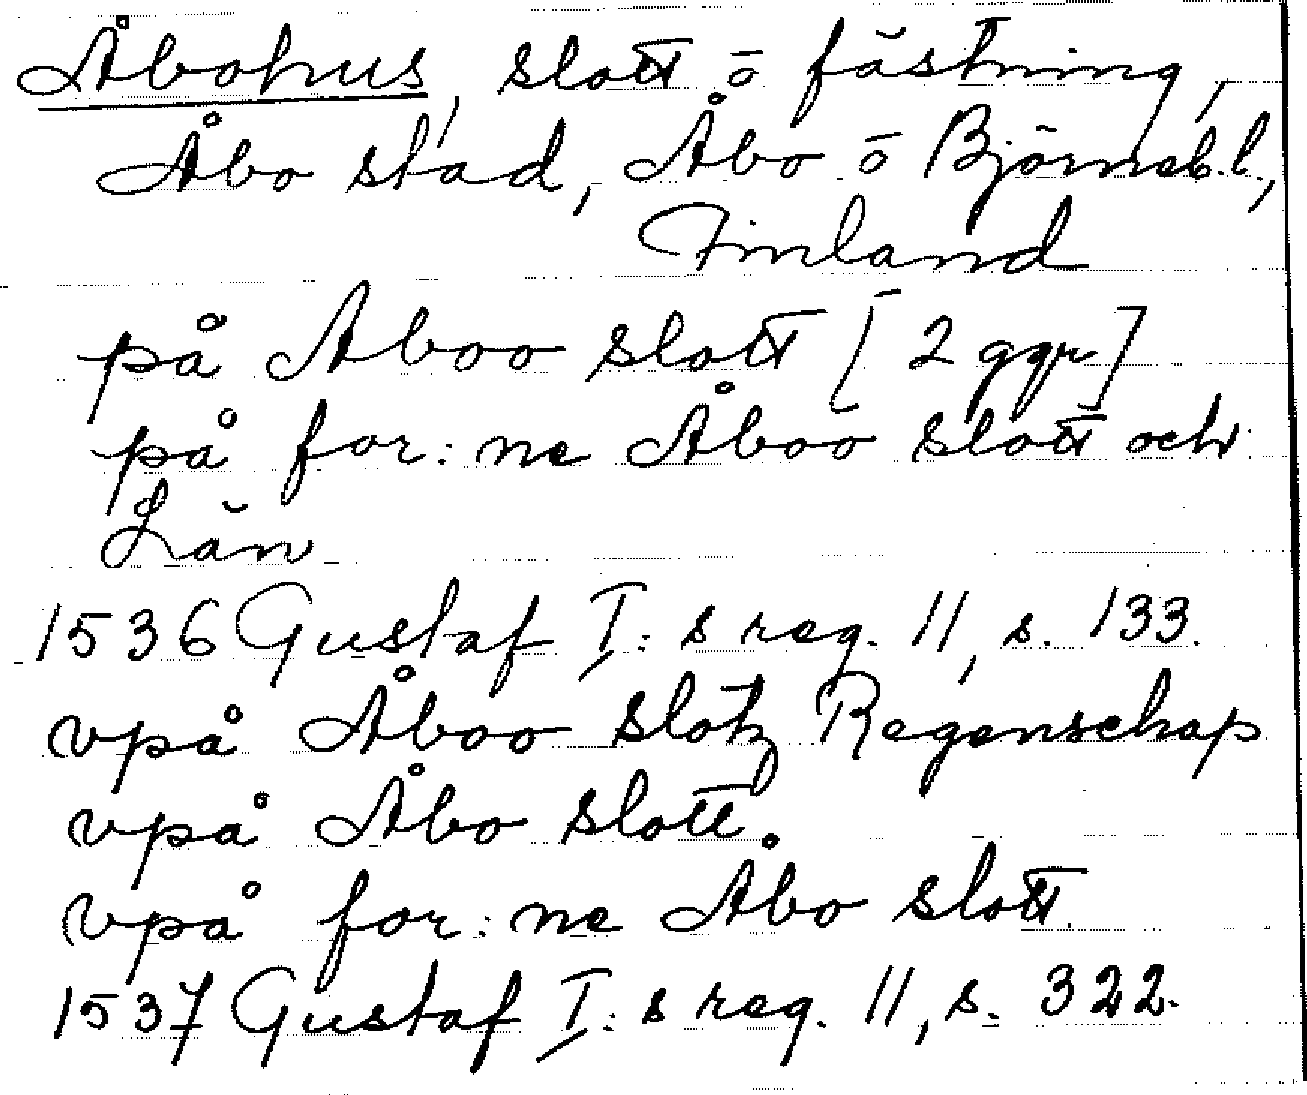 Åbohus, slott ō fästning,
Åbo stad, Åbo ō Björneb.l,
Finland
på Aboo slott [2 ggr]
på for:ne Åboo slott och
Län
1536 Gustaf I:s reg. 11, s. 133.
vpå Åboo slotz Regenschap
vpå Åbo slott.
vpå for:ne Åbo slott.
1537 Gustaf I:s reg. 11, s. 322.